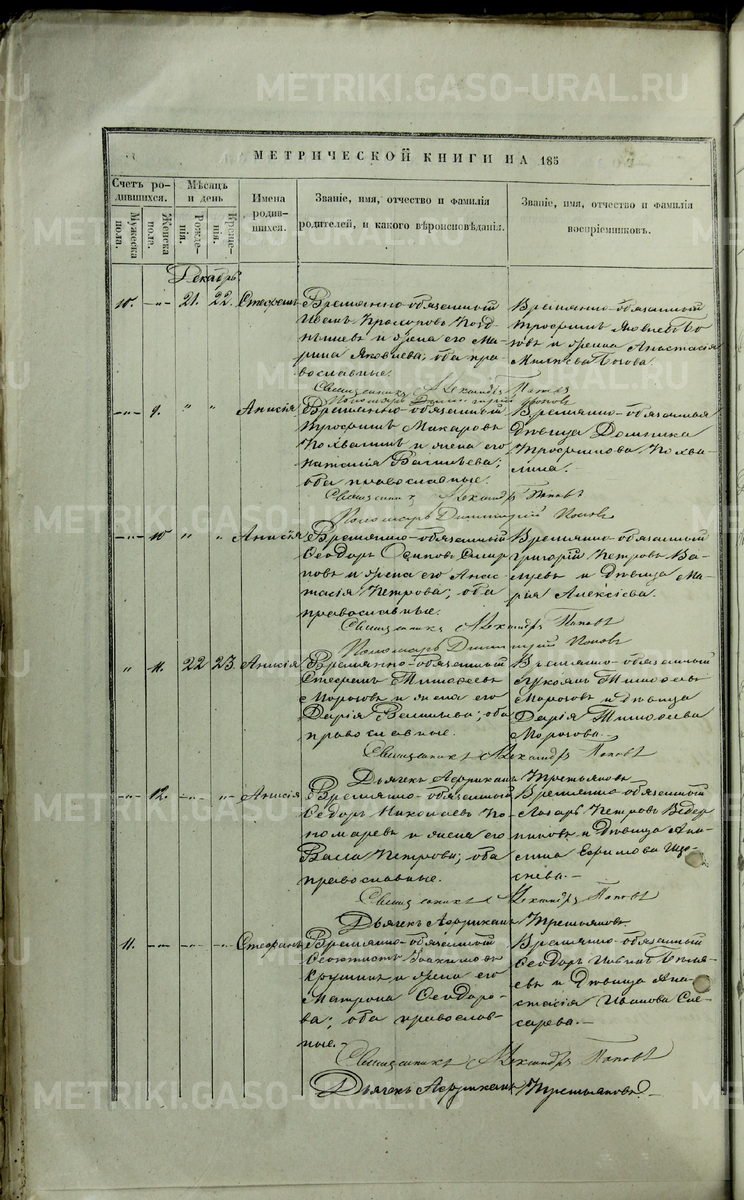 METRIKI.GASO-URAL.RU
МЕТРИЧЕСКОЙ КНИГИ НА 185
Счетъ родившихся.
Мѣсяцъ и день
Имена родившихся.
Званіе, имя, отчество и фамилія родителей, и какого вѣроисповѣданія.
Званіе, имя, отчество и фамилія воспріемниковъ.
Мужеска пола.
Женска пола.
Рожденія.
Крещенія.
Декабрь
10. 21. 22. Стефанъ Временно-обязанный Временно-обязанный
и жена его Ма- Трофимъ Яковлевъ
рина Яковлева; оба пра- и жена Анастасія
вославные.
Священникъ Александръ Поповъ
Пономарь Димитрій Поповъ
9. " " Анисія Временно-обязанный Временно-обязанная
Трофимъ Макаровъ дѣвица Домника
и жена его Трофимова
Наталія Васильева;
оба православные.
Священникъ Александръ Поповъ
Пономарь Димитрій Поповъ
10 " " Анисія Временно-обязанный Временно-обязанный
Ѳеодоръ Осиповъ Смир- Григорій Петровъ
новъ и жена его Анас- и дѣвица Ма-
тасія Петрова; оба рія Алексіева.
православные.
Священникъ Александръ Поповъ
Пономарь Димитрій Поповъ
" 11. 22 23 Анисія Временно-обязанный Временно-обязанный
Стефанъ Тимофеевъ Лукоянъ Тимофеевъ
Морозовъ и жена его Морозовъ и дѣвица
Дарія оба Дарія Тимофеева
православные. Морозова.
Священникъ Александръ Поповъ
Дьячекъ Африканъ Третьяковъ.
12. Анисія Временно-обязанный Временно-обязанный
Ѳеодоръ Николаевъ По- Лазарь Петровъ Ведер-
номаревъ и жена его никовъ и дѣвица
Петрова; оба Ефимова
православные.
Священникъ Александръ Поповъ
Дьячекъ Африканъ Третьяковъ.
11. Стефанъ Временно-обязанный Временно-обязанный
Ѳеоктистъ Ѳеодоръ
и жена его и дѣвица Ана-
Матрона Ѳеодоро- стасія Иванова Сле-
ва; оба православ- сарева.
ные.
Священникъ Александръ Поповъ
Дьячекъ Африканъ Третьяковъ.